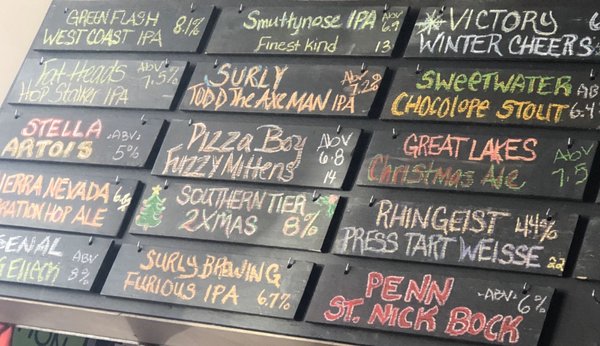 GREEN FLASH 8.1%
WEST COAST IPA
Smuttynose IPA ABV 6.9
Finest Kind 13
VICTORY 6
WINTER CHEERS
Fat Heads ABV 7.5%
Hop Stalker IPA
SURLY ABV 7.2
TODD THE AXE MAN IPA
SWEETWATER AB
CHOCOLOPE STOUT 6.4
STELLA -ABV-
ARTOIS 5%
Pizza Boy ABV 6.8
Fuzzy Mittens 14
GREAT LAKES ABV
Christmas Ale 7.5
IERRA NEVADA
RATION HOP ALE
SOUTHERN TIER
2XMAS 8%
RHINGEIST 4.4%
PRESS TART WEISSE 22
ENAL ABV
SURLY BREWING
FURIOUS IPA 6.7%
PENN -ABV- 6%
ST. NICK BOCK